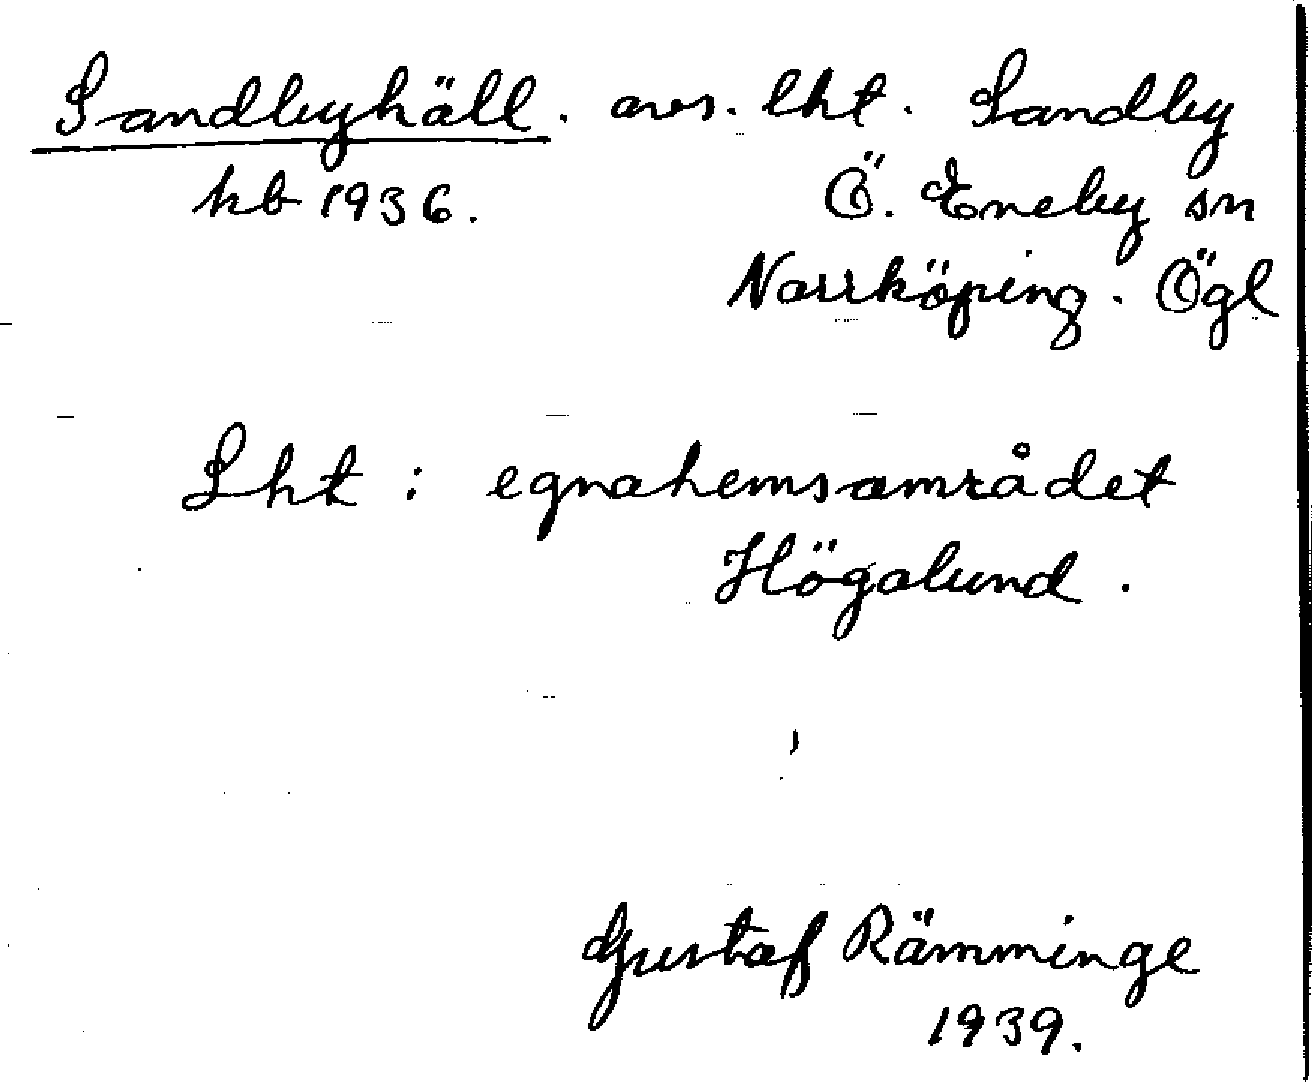 Sandbyhäll. avs. lht. Sandby
kb 1936. Ö. Eneby sn
Norrköping. Ögl
Lht: egnahemsområdet
Högalund.
Gustaf Rämminge
1939.